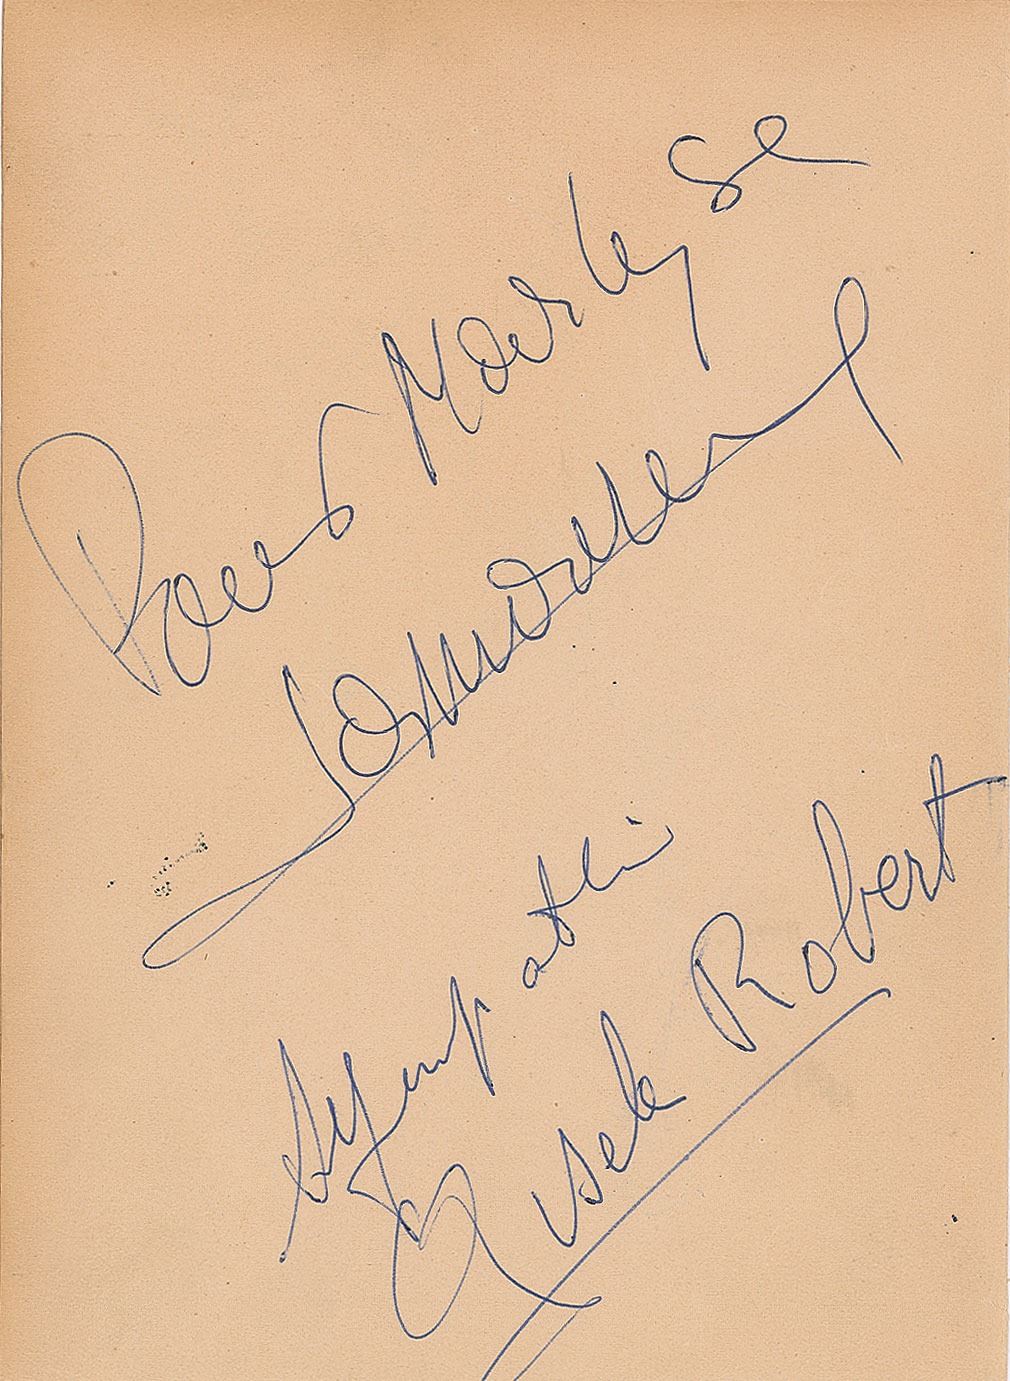 Pour Marlyse
Sympathie
Gisele Robert